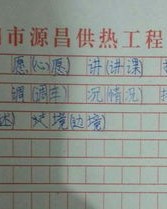 市源昌供热工程
愿(心愿) 讲(讲课)
调(调车) 况(情况)
达) 环境(边境)